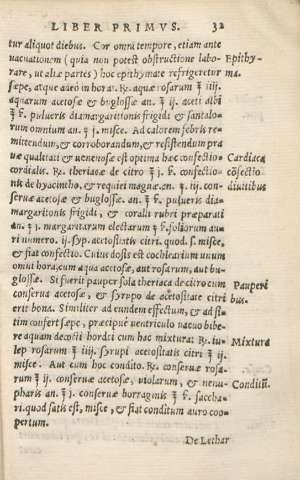 LIBER PRIMVS. 32
tur aliquot diebus. Cor omni tempore, etiam ante
uacuationem (quia non potest obstructione labo- Epithy-
rare, ut aliæ partes) hoc epithymate refrigeretur ma.
sæpe, atque adeò in hor as. ℞. aquæ rosarum ℥ iiij.
aquarum acetosæ & buglossæ an. ℥ ij. aceti albi
℥ ß. pulueris diamargaritonis frigidi & santalo-
rum omnium an. ʒ j. misce. Ad calorem febris re-
mittendum, & corroborandum, & resistendum pra
uæ qualitati & uenenosæ est optima hæc confectio Cardiaca
cordialis. ℞. theriacæ de citro ʒ j. ß. confectio- cõfectio
nis de hyacintho, & requiei magnæ an. ʒ iij. con- diuitibus
seruæ acetosæ & buglossæ an. ℥ ß. pulueris dia-
margaritonis frigidi, & coralli rubri præparati
an. ʒ j. margaritarum electarum ʒ ß. foliorum au-
ri numero. ij. syp. acetositatis citri. quod. s. misce,
& fiat confectio. Cuius dosis est cochlearium unum
omni hora, cum aqua acetosæ, aut rosarum, aut bu-
glossæ. Si fuerit pauper sola theriaca de citro cum Pauperi
conserua acetosæ, & syrupo de acetositate citri bus.
erit bona. Similiter ad eundem effectum, & ad si-
tim confert sæpe, præcipuè ventriculo uacuo bibe-
re aquam decocti hordei cum hac mixtura: ℞. iu- Mixtura
lep rosarum ℥ iiij. syrupi acetositatis citri ℥ ij.
misce. Aut cum hoc condito. ℞. conseruæ rosa-
rum ℥ ij. conseruæ acetosæ, uiolarum, & nenu- Conditũ.
pharis an. ℥ j. conseruæ borraginis ℥ ß. sacchа-
ri. quod satis est, misce, & fiat conditum auro coo-
pertum.
De Lethar